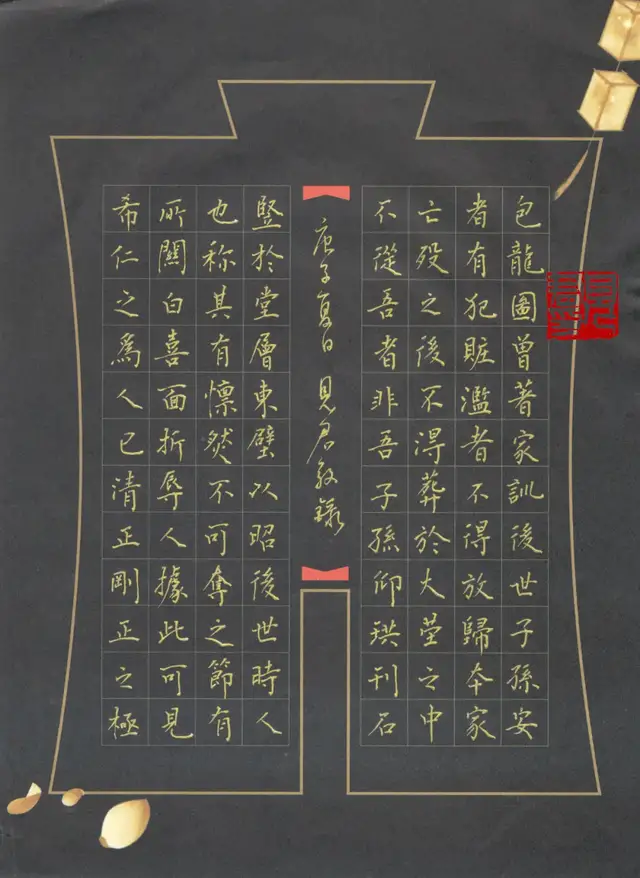 包龍圖曾著家訓後世子孫安
者有犯賍濫者不得放歸本家
亡歿之後不得葬於大塋之中
不從吾者非吾子孫仰珙刊石
豎於堂層東壁以昭後世時人
也称其有懍然不可奪之節有
所關白喜面折辱人據此可見
希仁之為人已清正剛正之極
庚子夏日 見君敬錄